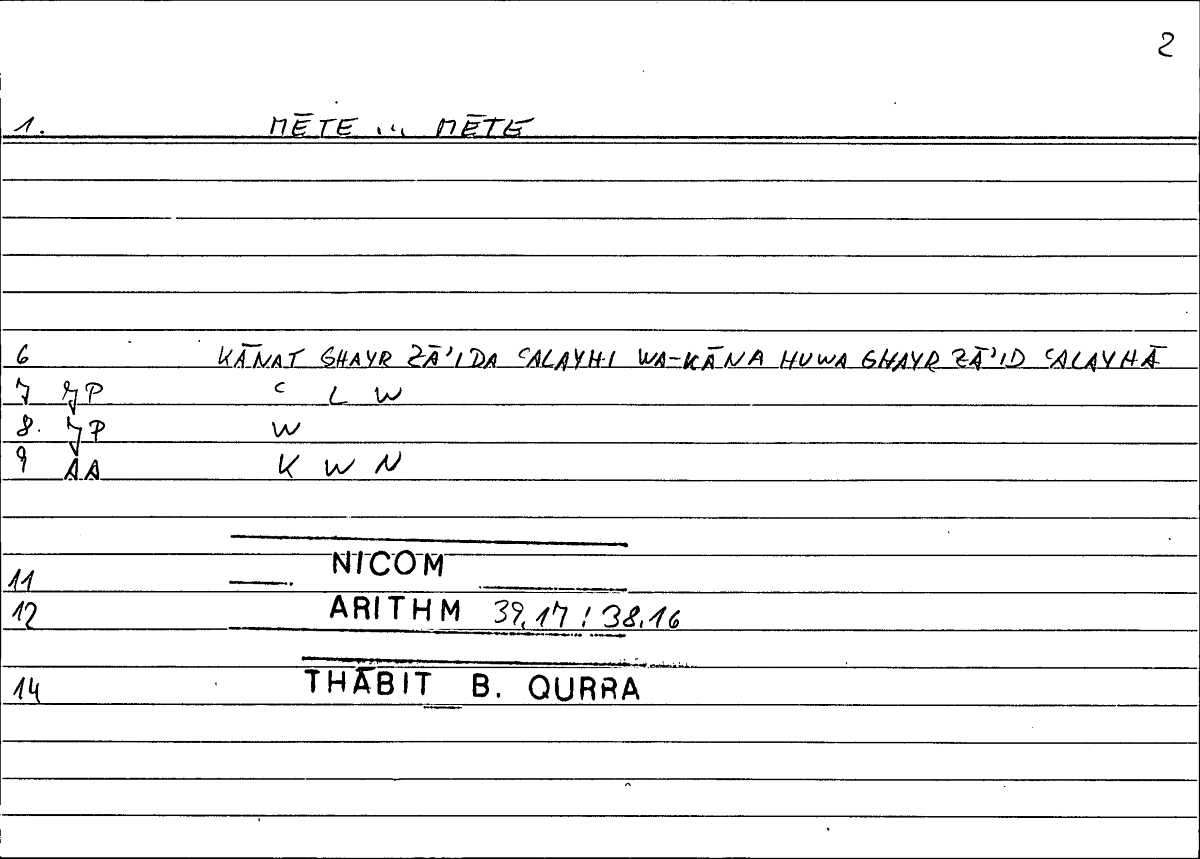 2
1. MĒTE ... MĒTE
6 KĀNAT GHAYR ZĀʾIDA ʿALAYHI WA-KĀNA HUWA GHAYR ZĀʾID ʿALAYHĀ
7 JP ʿ L W
8. JP W
9 AA K W N
11 NICOM
12 ARITHM 39,17 : 38,16
14 THĀBIT B. QURRA